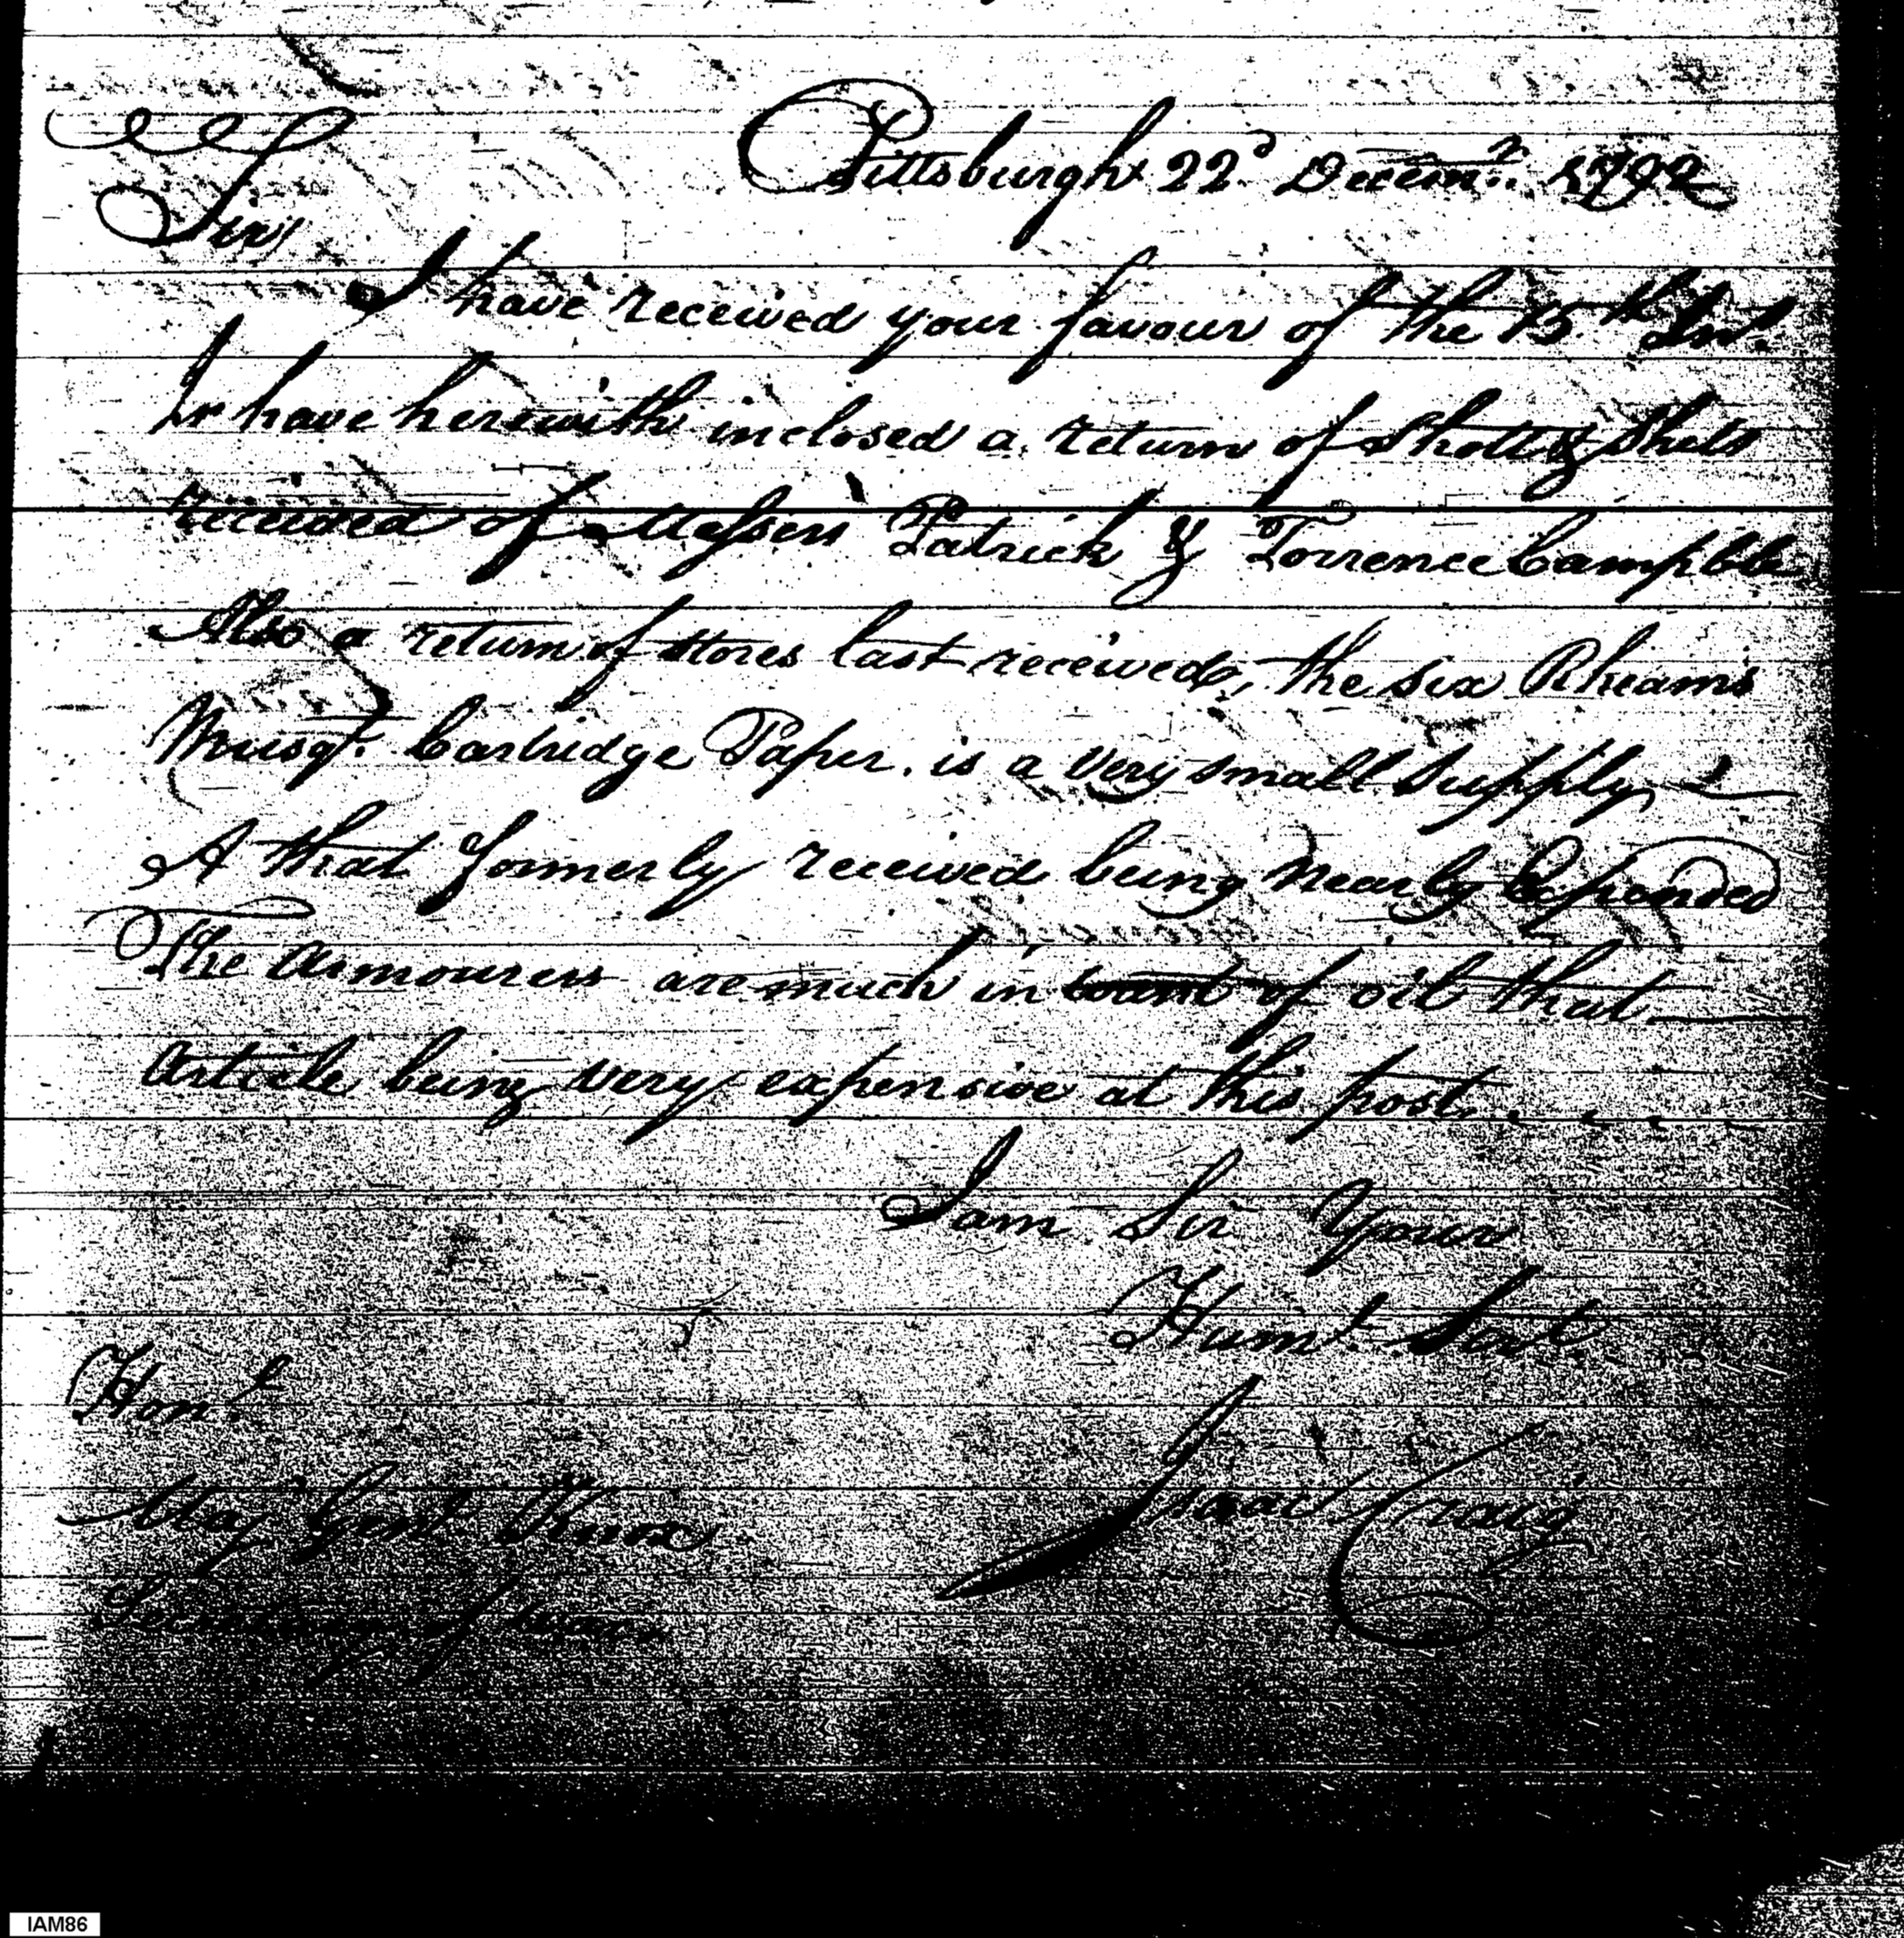 Pittsburgh 22d Decemr. 1792
Sir
I have received your favour of the 15th Inst.
& have herewith inclosed a return of Shott & Shels
received of Messers Patrick & Torrence Campble
Also a return of Stores last received, the six Rheams
Musqt. Cartridge Paper, is a very small Supply
& that formerly received being Nearly Expended
The Armourers are much in want of oil that
Article being very expensive at this post
I am Sir Your
Humb. Servt.
Honl.
Isaac Craig
Maj Genl Knox
Secretary of War
IAM86